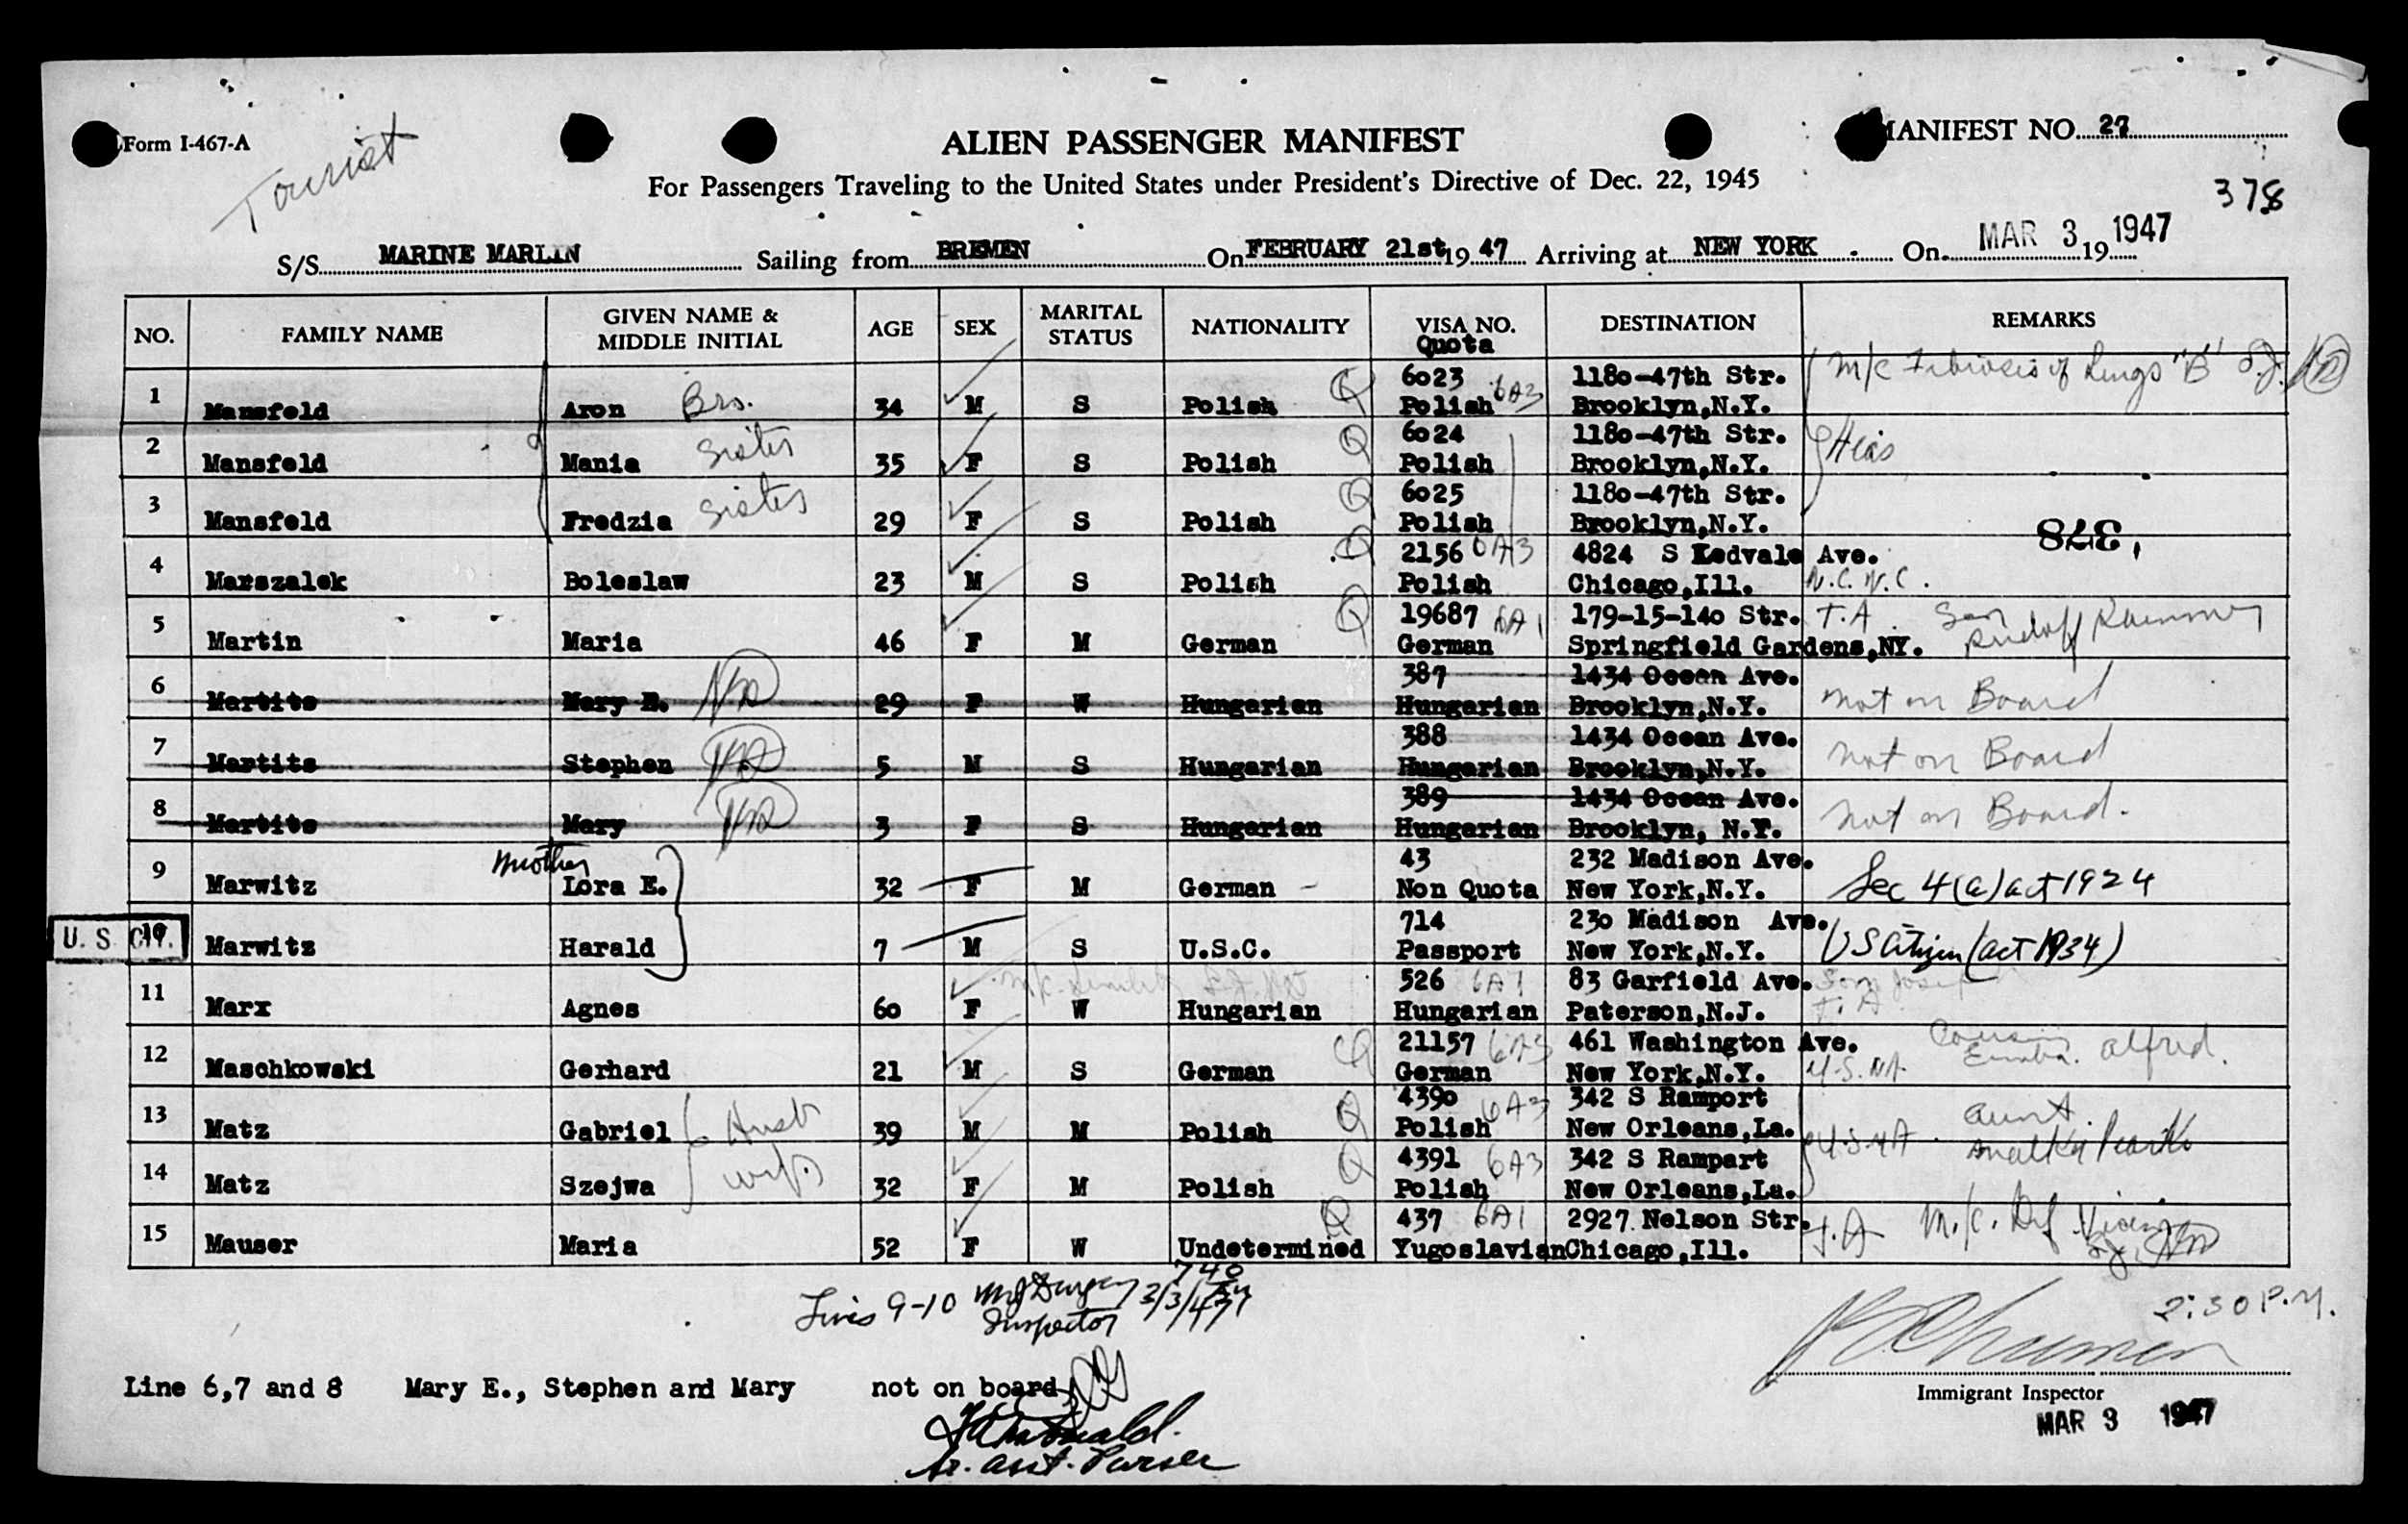 Form I-467-A
Tourist
ALIEN PASSENGER MANIFEST
MANIFEST NO. 27
For Passengers Traveling to the United States under President's Directive of Dec. 22, 1945
378
S/S MARINE MARLIN Sailing from BREMEN On FEBRUARY 21st 19 47 Arriving at NEW YORK On MAR 3 19 1947
NO. FAMILY NAME GIVEN NAME & MIDDLE INITIAL AGE SEX MARITAL STATUS NATIONALITY VISA NO. Quota DESTINATION REMARKS
6023 6A3 1180-47th Str. M/C Fibrosis of Lungs "B" S.J.
1 Mansfeld Aron Bro. 34 M S Polish Q Polish Brooklyn,N.Y.
6024 1180-47th Str.
2 Mansfeld Mania Sister 35 F S Polish Q Polish Brooklyn,N.Y. Hias
6025 1180-47th Str.
3 Mansfeld Fredzia Sister 29 F S Polish Q Polish Brooklyn,N.Y.
378
2156 6A3 4824 S Kedvale Ave.
4 Marszalek Boleslaw 23 M S Polish Q Polish Chicago,Ill. N.C.W.C.
19687 6A1 179-15-140 Str. T.A. Son
5 Martin Maria 46 F M German Q German Springfield Gardens,NY. Rudolf
387 1434 Ocean Ave.
6 Martits Mary E. 29 F W Hungarian Hungarian Brooklyn,N.Y. not on Board
388 1434 Ocean Ave.
7 Martits Stephen 5 M S Hungarian Hungarian Brooklyn,N.Y. not on Board
389 1434 Ocean Ave.
8 Martits Mary 3 F S Hungarian Hungarian Brooklyn, N.Y. not on Board.
mother
43 232 Madison Ave.
9 Marwitz Lora E. 32 F M German - Non Quota New York,N.Y. Sec 4(a) act 1924
714 230 Madison Ave.
U. S. CIT. 10 Marwitz Harald 7 M S U.S.C. Passport New York,N.Y. US Citizen (act 1934)
526 6A1 83 Garfield Ave. Son Josef
11 Marx Agnes 60 F W Hungarian Hungarian Paterson,N.J. T.A
21157 6A3 461 Washington Ave. Cousin
12 Maschkowski Gerhard 21 M S German Q German New York,N.Y. U.S.NA. Alfred.
4390 6A3 342 S Ramport Aunt
13 Matz Gabriel Husb 39 M M Polish Q Polish New Orleans,La. U.S.NA.
4391 6A3 342 S Rampart
14 Matz Szejwa wife 32 F M Polish Q Polish New Orleans,La.
437 6A1 2927 Nelson Str. T.A M/C. Def Vision
15 Mauser Maria 52 F W Undetermined Q Yugoslavian Chicago,Ill.
Lines 9-10 3/3/47
Inspector
2:30 P.M.
Immigrant Inspector
MAR 3 1947
Line 6,7 and 8 Mary E., Stephen and Mary not on board
Sr. Asst. Purser